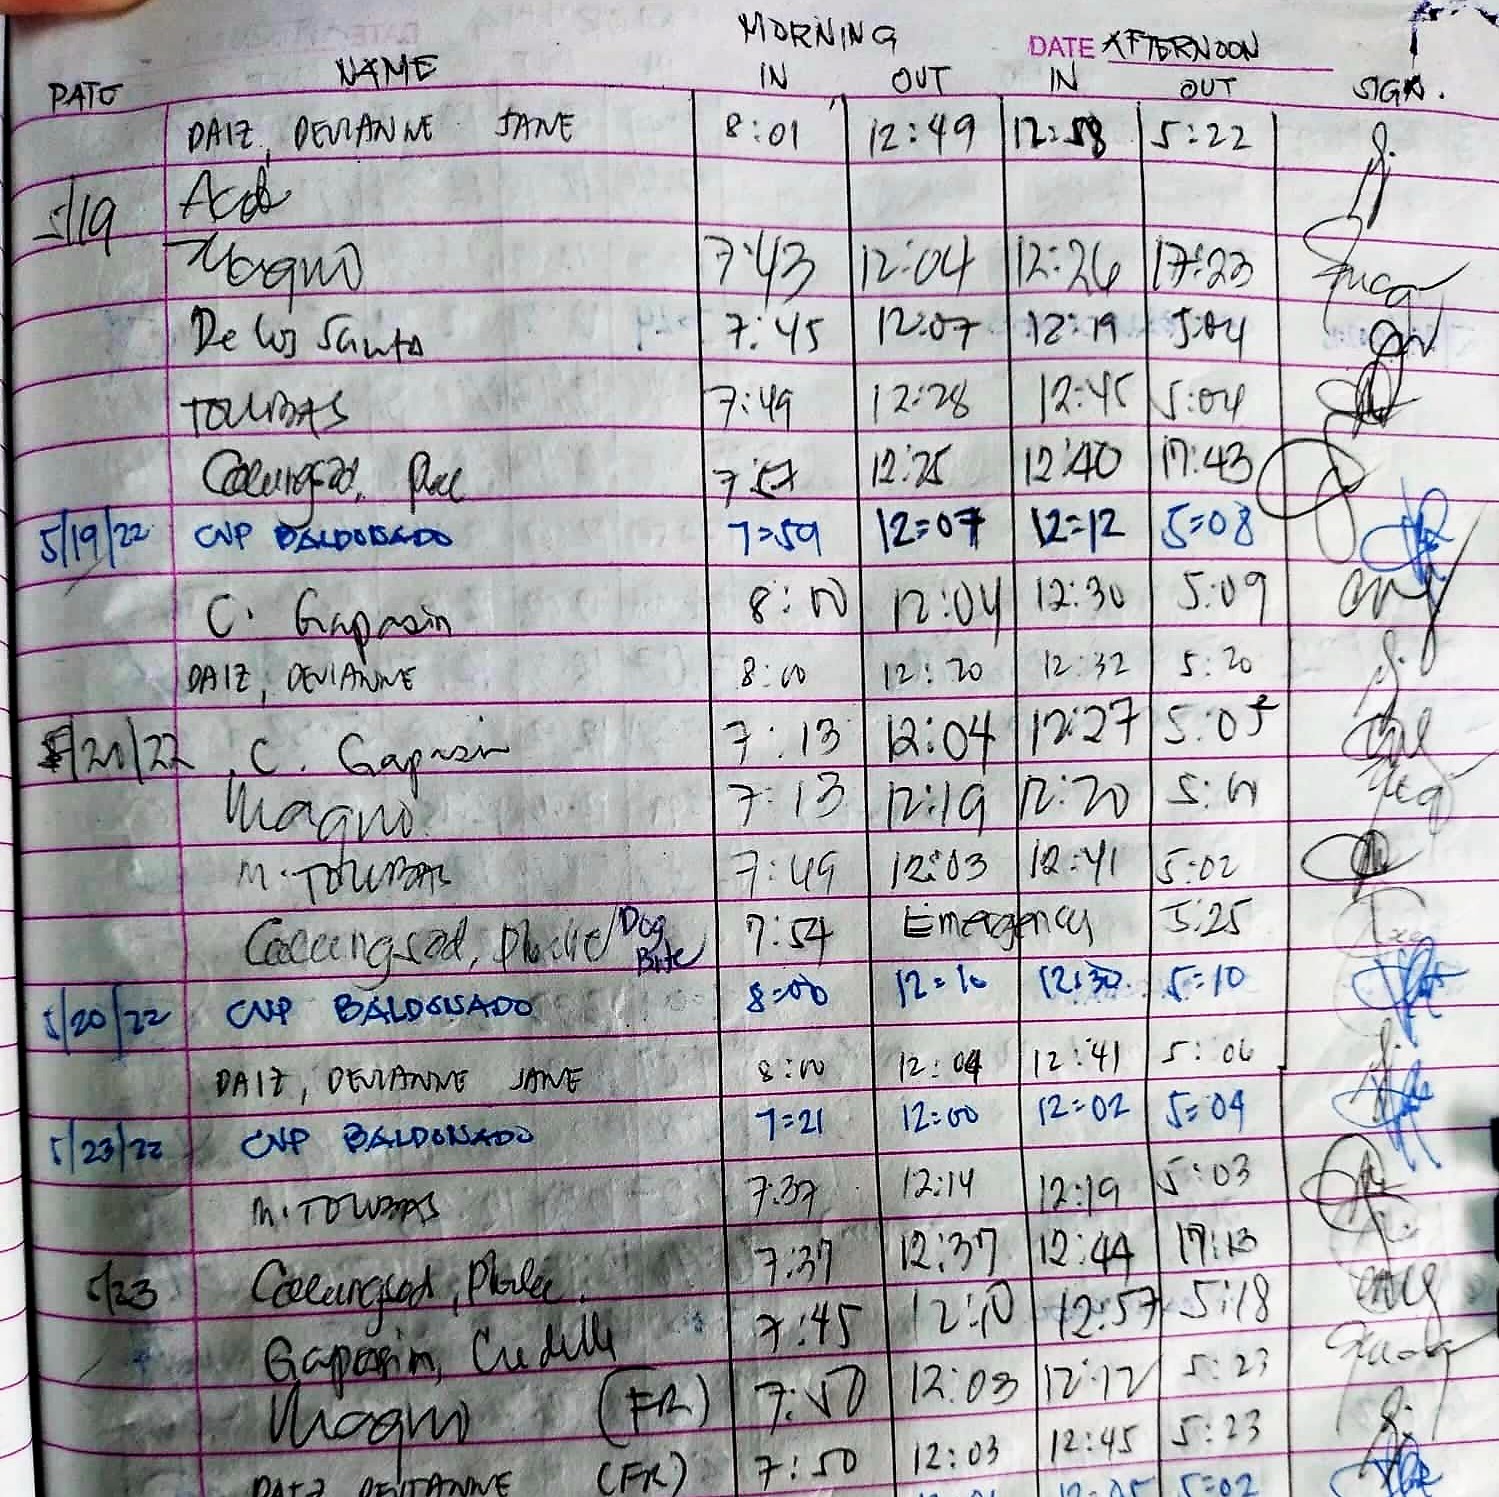 MORNING DATE AFTERNOON
DATE NAME IN OUT IN OUT SIGN.
DAIZ, DEVIANNE JANE 8:01 12:49 12:58 5:22
5/19
Magno 7:43 12:04 12:26 17:23
De los Santos 7:45 12:07 12:19 5:04
TOLIBAS 7:49 12:28 12:45 5:04
7:57 12:25 12:40 17:43
5/19/22 CNP BALDONADO 7=59 12=07 12=12 5=08
C. Gapasin 8:00 12:04 12:30 5:09
DAIZ, DEVIANNE 8:00 12:20 12:32 5:20
5/20/22 C. Gapasin 7:13 12:04 12:27 5:05
Magno 7:13 12:19 12:20 5:01
M. TOLIBAS 7:49 12:03 12:41 5:02
Dog Bite 7:54 Emergency 5:25
5/20/22 CNP BALDONADO 8=00 12=10 12:30 5=10
DAIZ, DEVIANNE JANE 8:00 12:04 12:41 5:06
5/23/22 CNP BALDONADO 7=21 12=00 12=02 5=04
M. TOLIBAS 7:37 12:14 12:19 5:03
5/23 7:37 12:37 12:44 17:13
Gapasin, 7:45 12:10 12:57 5:18
Magno (FR) 7:50 12:03 12:12 5:23
DAIZ DEVIANNE (FR) 7:50 12:03 12:45 5:23
5=02